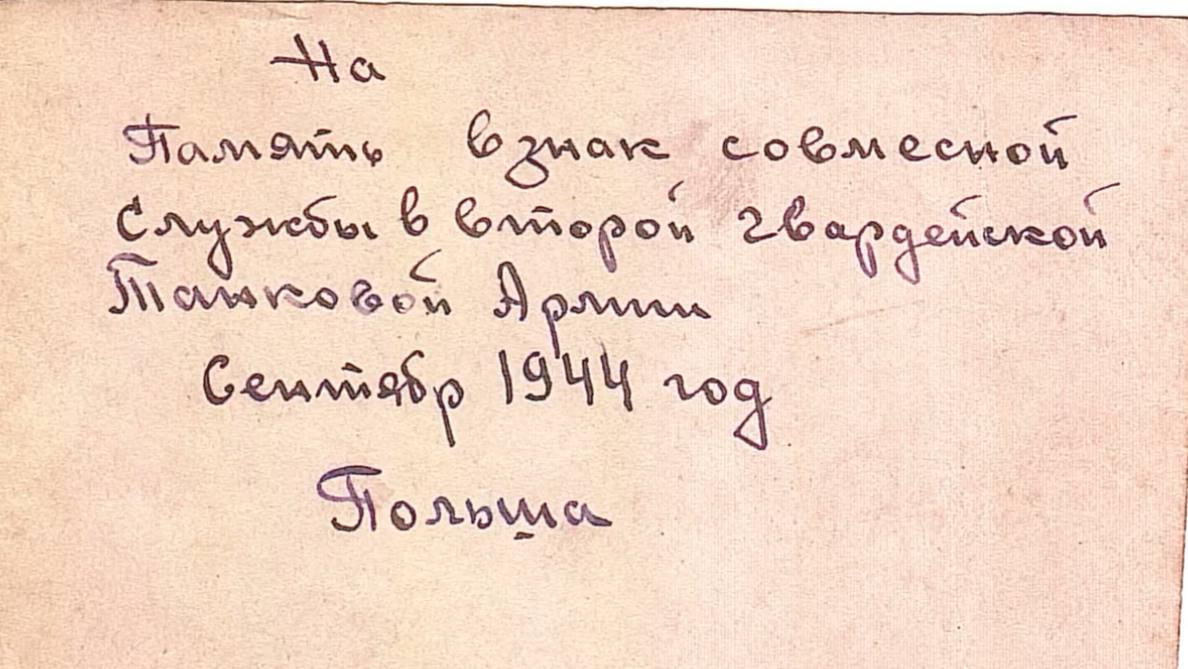 На
Память в знак совмесной
Службы в второй гвардейской
Танковой Армии
Сентябр 1944 год
Польша